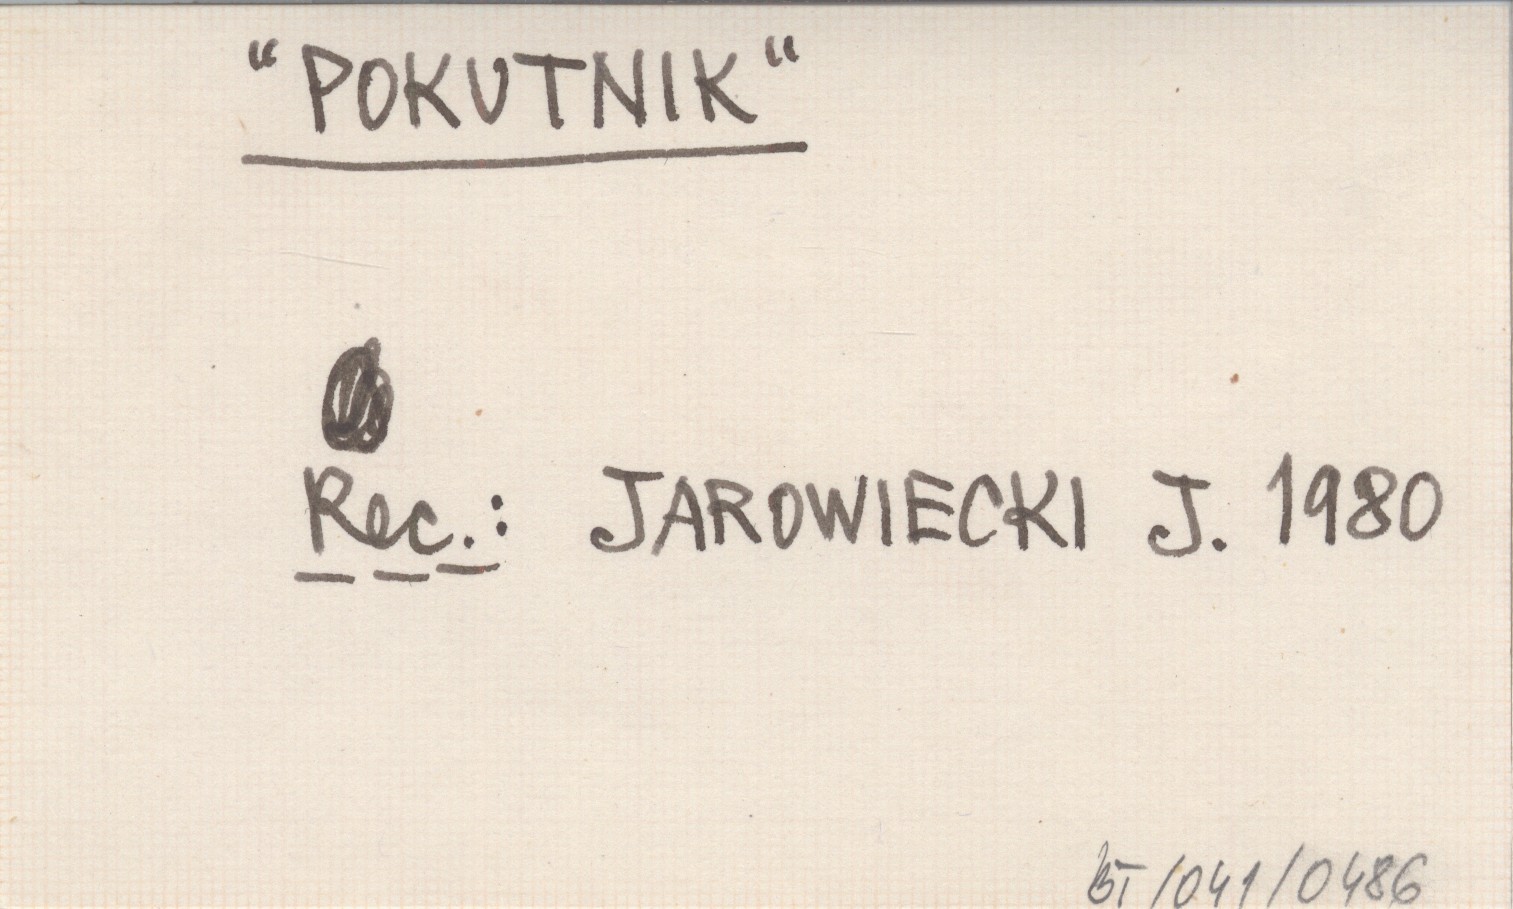 “POKUTNIK“
Rec.: JAROWIECKI J. 1980
BT/041/0486